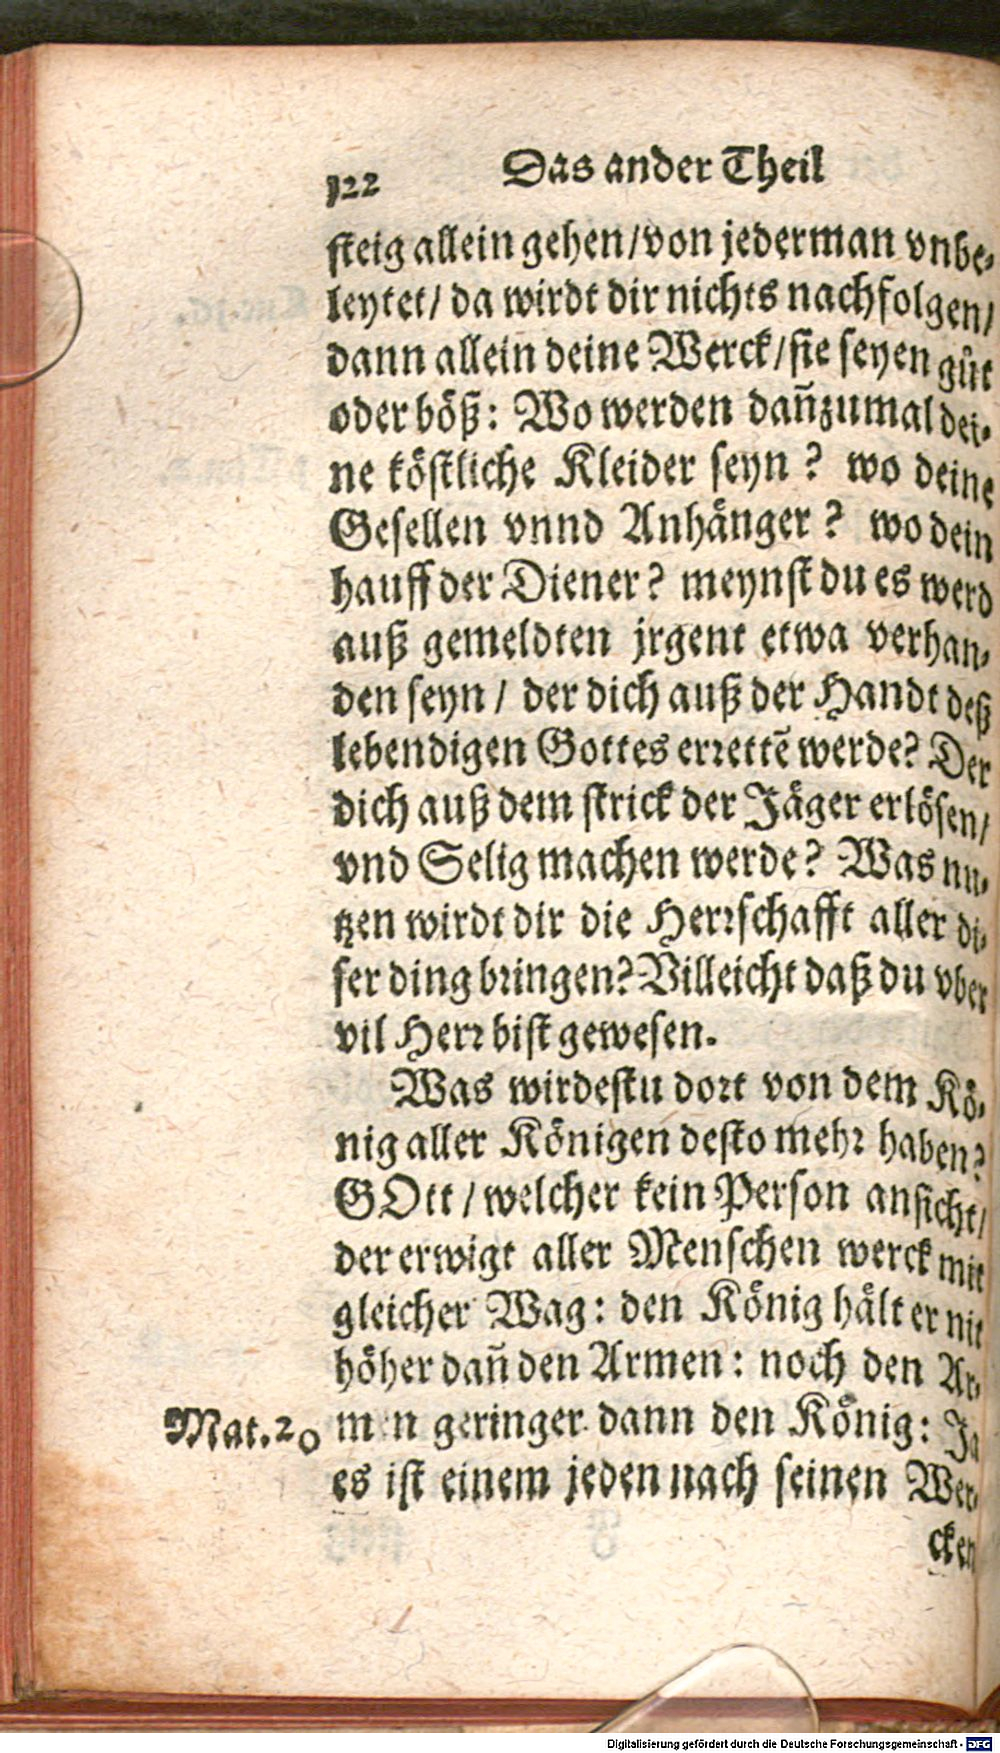 122 Das ander Theil
steig allein gehen/von jederman vnbe-
leytet/ da wirdt dir nichts nachfolgen/
dann allein deine Werck/sie seyen gůt
oder böß: Wo werden dañzumal dei-
ne köstliche Kleider seyn? wo deine
Gesellen vnnd Anhänger? wo dein
hauff der Diener? meynst du es werd
auß gemeldten jrgent etwa verhan-
den seyn/ der dich auß der Handt deß
lebendigen Gottes errettẽ werde? Der
dich auß dem strick der Jäger erlösen/
vnd Selig machen werde? Was nu-
tzen wirdt dir die Herrschafft aller di-
ser ding bringen? Villeicht daß du vber
vil Herr bist gewesen.
Was wirdestu dort von dem Kö-
nig aller Königen desto mehr haben?
GOtt/welcher kein Person ansicht/
der erwigt aller Menschen werck mit
gleicher Wag: den König hält er nit
höher dañ den Armen: noch den Ar-
Mat.20 men geringer dann den König: Ja
es ist einem jeden nach seinen Wer-
cken
Digitalisierung gefördert durch die Deutsche Forschungsgemeinschaft - DFG